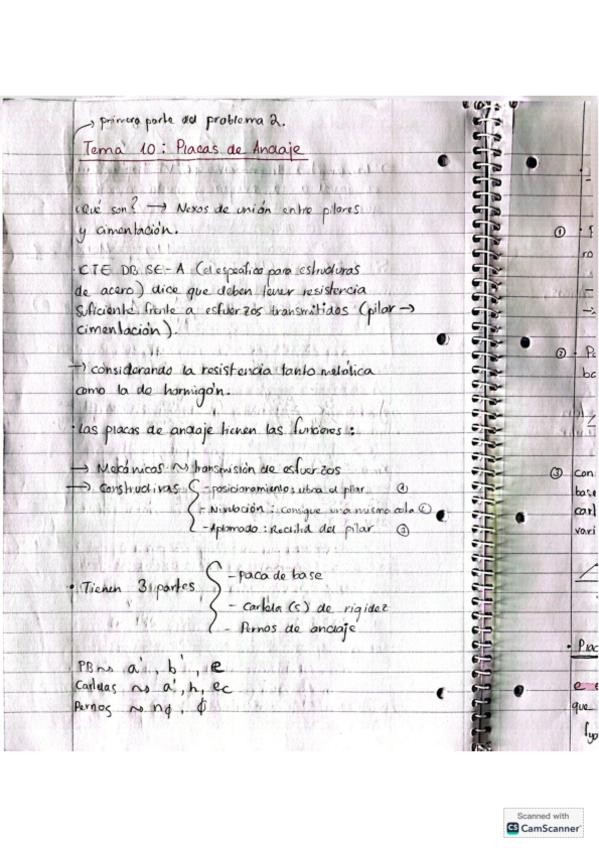 → primera parte del problema 2.
Tema 10: Placas de Anclaje
¿Qué son? → Nexos de unión entre pilares
y cimentación.
· CTE DB SE-A (el específico para estructuras
de acero) dice que deben tener resistencia
suficiente frente a esfuerzos transmitidos (pilar →
cimentación).
→ considerando la resistencia tanto metálica
como la de hormigón.
· Las placas de anclaje tienen las funciones:
→ Mecánicas ~ transmisión de esfuerzos
→ Constructivas { - posicionamiento: el pilar
- Nivelación: Consigue una misma cota
- Aplomado: Rectitud del pilar
· Tienen 3 partes { - paca de base
- cartela (s) de rigidez
- Pernos de anclaje
PB ~ a', b', e
Cartelas ~ a', h, ec
Pernos ~ nϕ, ϕ
①
ro
②
bc
③ con
base
cart
vari
· Plac
e
que
fyo
Scanned with
CS CamScanner